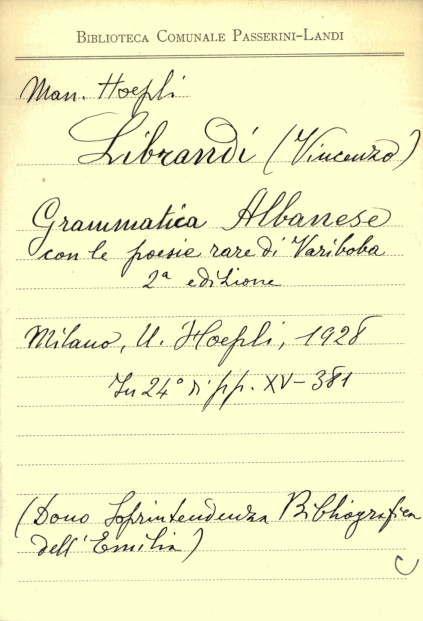 BIBLIOTECA COMUNALE PASSERINI-LANDI
Man. Hoepli
Librandi (Vincenzo)
Grammatica Albanese
con le poesie rare di Variboba
2ª edizione
Milano, U. Hoepli, 1928
In 24° di pp. XV-381
(Dono Soprintendenza Bibliografica
dell'Emilia)
C